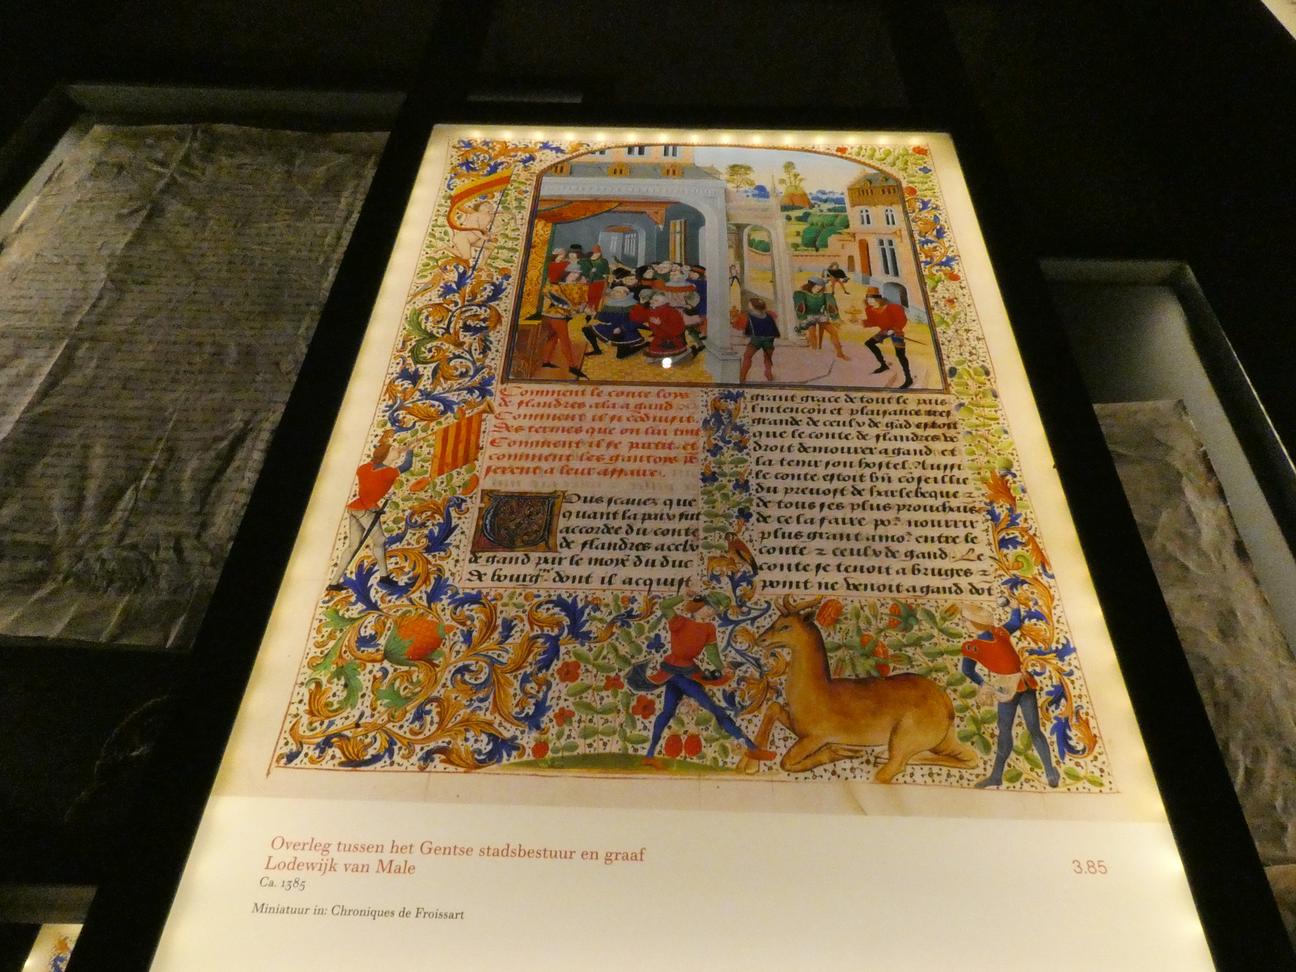 Comment le conte loys
de flandres ala a gand
Comment il se co͂duisit
Des termes que on lui tint
Comment il se partit et
comment les gantois
a leur affaire.
Ous scavez que
quant la paix fut
accordee du conte
de flandres a ceulx
gand par le moye͂ du duc
de bourg͂ dont il acquist
grant grace de tout le pais
grande de ceulx de gad
que le conte de flandres
gand et
la tenir son hostel. Aussi
le conte estoit
du prevost de harlebeque
de tous ses plus prouchais
de ce la faire po͂. nourrir
plus grant amo͂. entre le
conte z ceulx de gand. Le
conte se tenoit a bruges z
point ne venoit a gand dot
Overleg tussen het Gentse stadsbestuur en graaf
Lodewijk van Male
Ca. 1385
Miniatuur in: Chroniques de Froissart
3.85